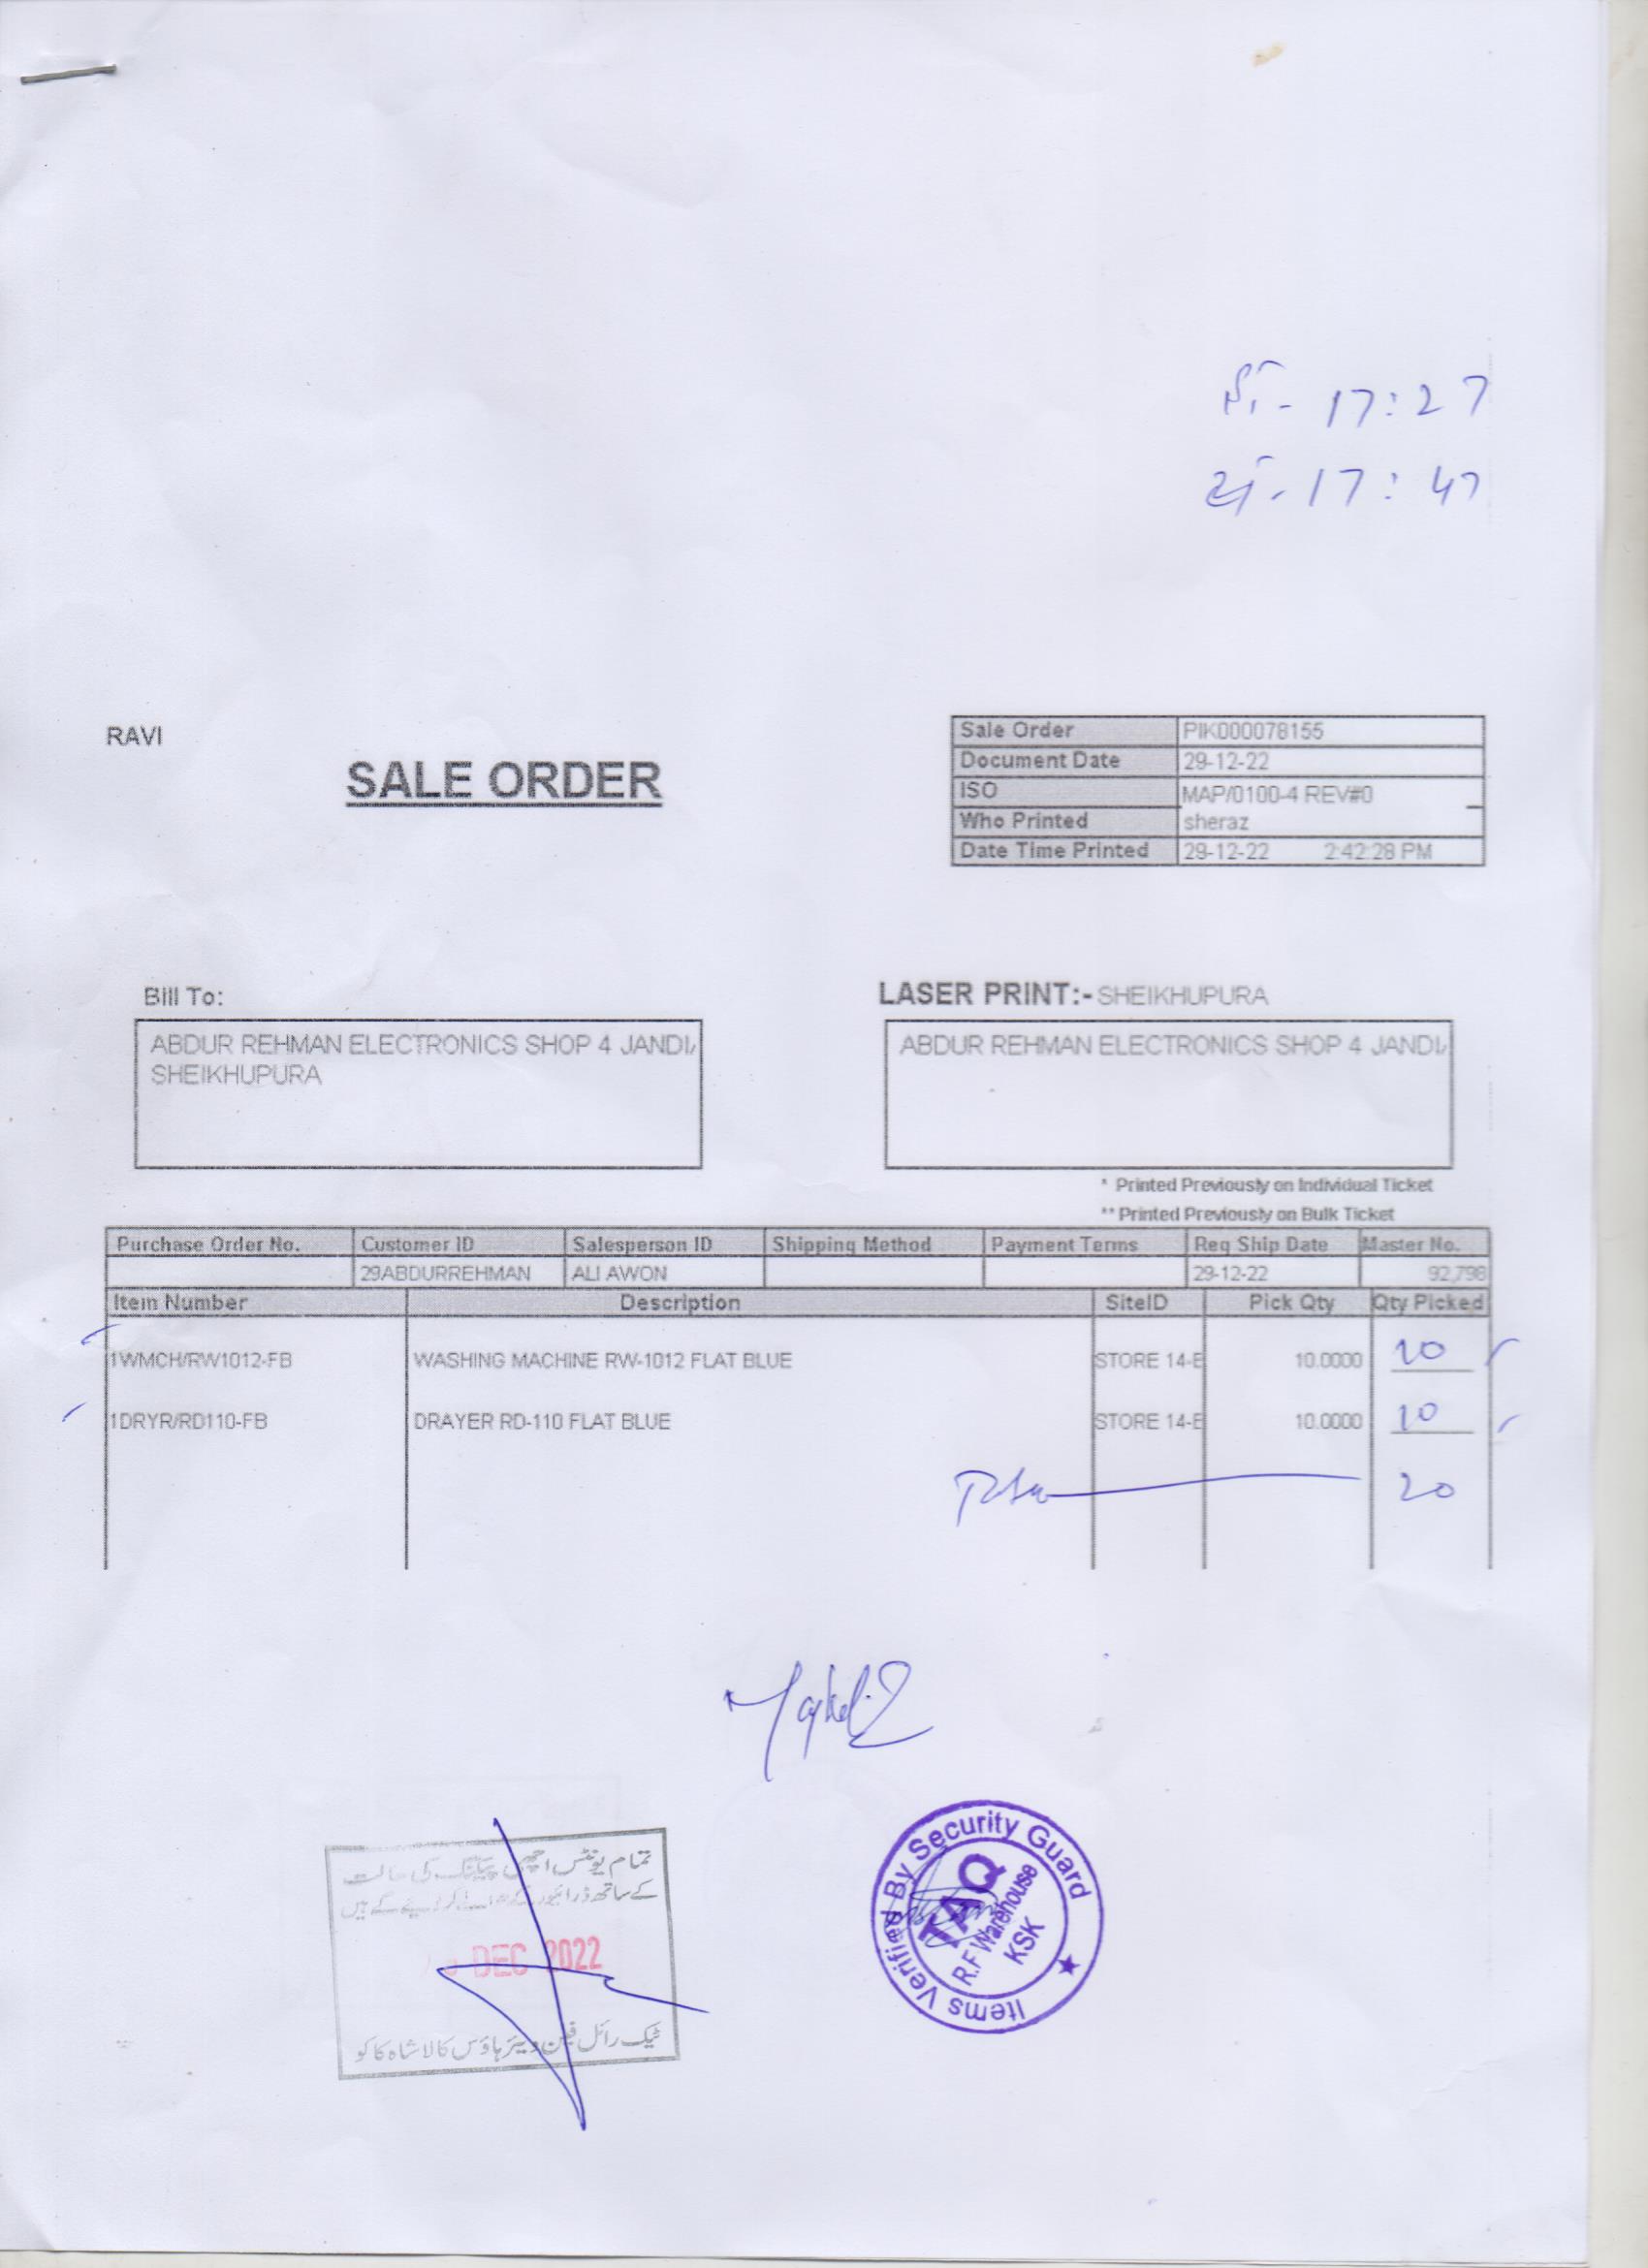 17:27
17:47
RAVI
SALE ORDER
Sale Order PIK000078155
Document Date 29-12-22
ISO MAP/0100-4 REV#0
Who Printed sheraz
Date Time Printed 29-12-22 2:42:28 PM
Bill To:
LASER PRINT:- SHEIKHUPURA
ABDUR REHMAN ELECTRONICS SHOP 4 JANDI
SHEIKHUPURA
ABDUR REHMAN ELECTRONICS SHOP 4 JANDI
* Printed Previously on Individual Ticket
** Printed Previously on Bulk Ticket
Purchase Order No. Customer ID Salesperson ID Shipping Method Payment Terms Req Ship Date Master No.
29ABDURREHMAN ALI AWON 29-12-22 92,798
Item Number Description SiteID Pick Qty Qty Picked
1WMCH/RW1012-FB WASHING MACHINE RW-1012 FLAT BLUE STORE 14-E 10.0000 10
1DRYR/RD110-FB DRAYER RD-110 FLAT BLUE STORE 14-E 10.0000 10
20
تمام یونٹس اچھی پیکنگ کی حالت
کے ساتھ ڈرائیور کے
DEC 2022
ٹیک رائل فین ویئر ہاؤس کالا شاہ کاکو
Items Verified By Security Guard
TAQ
R.F Warehouse
KSK